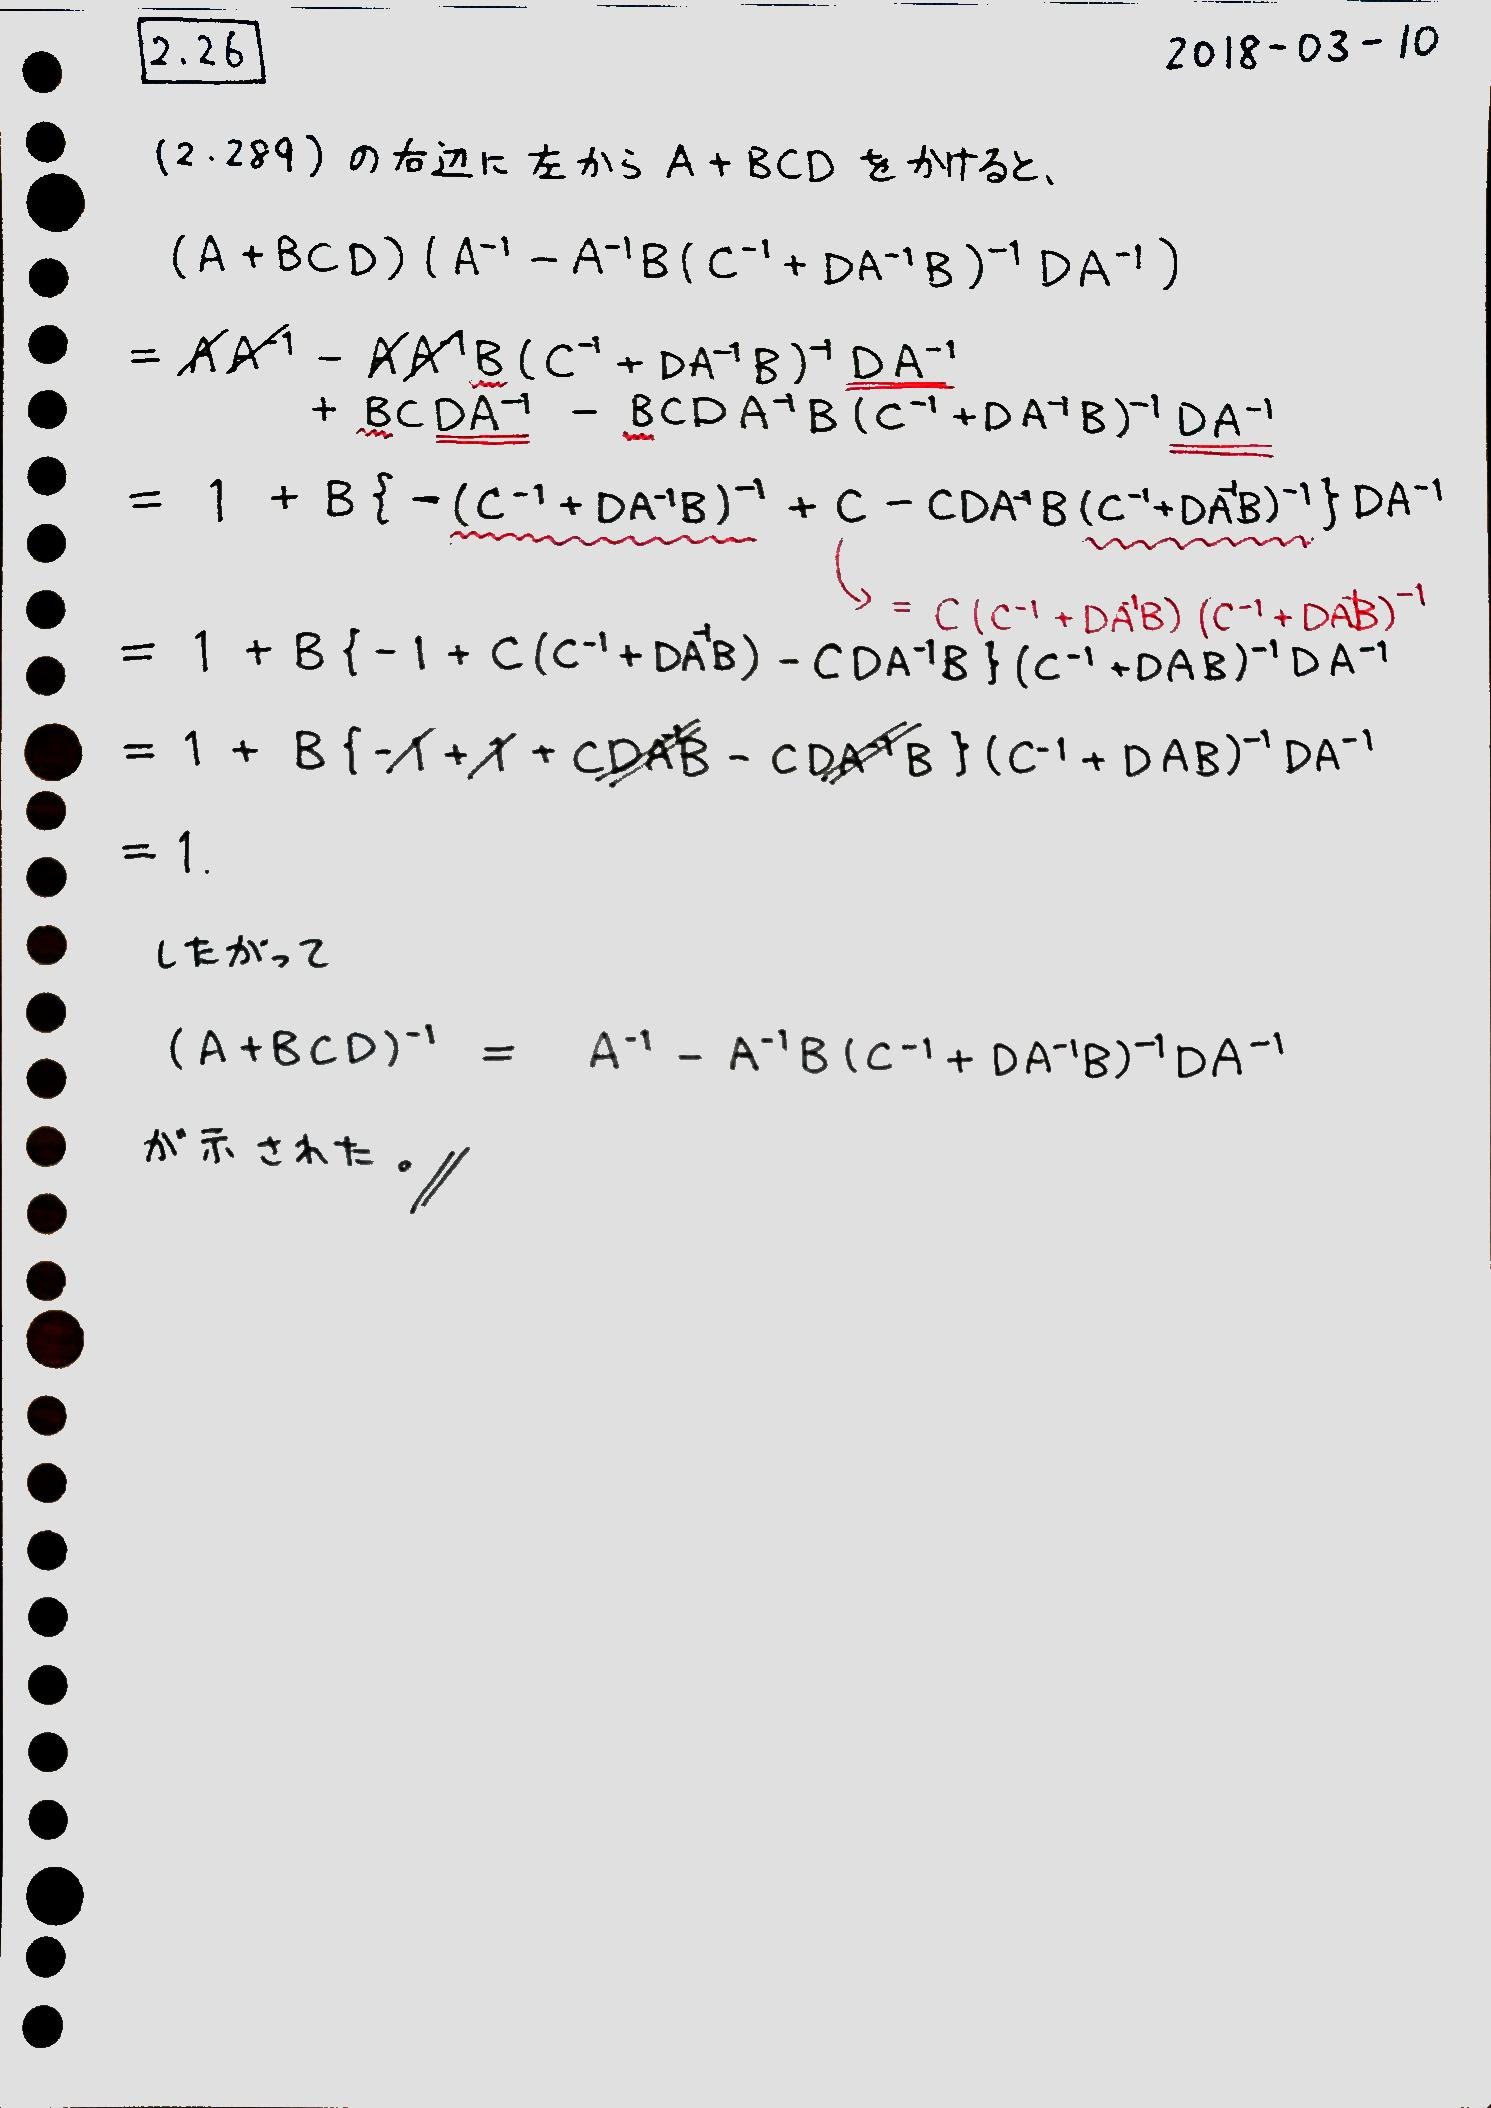 2.26
2018-03-10
(2.289) の右辺に左から A+BCD をかけると、
(A+BCD)(A⁻¹ - A⁻¹B(C⁻¹+DA⁻¹B)⁻¹DA⁻¹)
= AA⁻¹ - AA⁻¹B(C⁻¹+DA⁻¹B)⁻¹DA⁻¹
+ BCDA⁻¹ - BCDA⁻¹B(C⁻¹+DA⁻¹B)⁻¹DA⁻¹
= 1 + B{-(C⁻¹+DA⁻¹B)⁻¹ + C - CDA⁻¹B(C⁻¹+DA⁻¹B)⁻¹}DA⁻¹
= C(C⁻¹+DA⁻¹B)(C⁻¹+DA⁻¹B)⁻¹
= 1 + B{-1 + C(C⁻¹+DA⁻¹B) - CDA⁻¹B}(C⁻¹+DAB)⁻¹DA⁻¹
= 1 + B{-1+1+CDA⁻¹B - CDA⁻¹B}(C⁻¹+DAB)⁻¹DA⁻¹
= 1.
したがって
(A+BCD)⁻¹ = A⁻¹ - A⁻¹B(C⁻¹+DA⁻¹B)⁻¹DA⁻¹
が示された。//